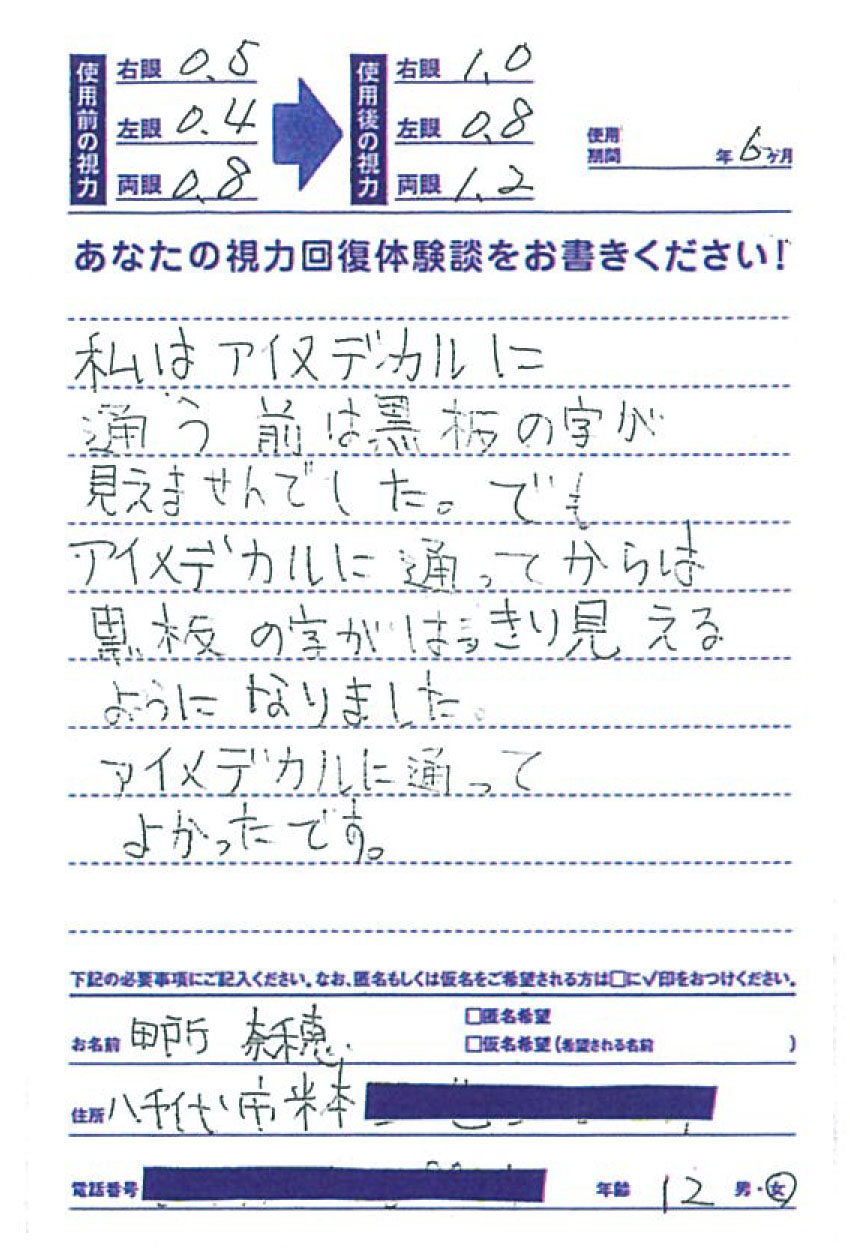 使用前の視力
右眼 0.5
左眼 0.4
両眼 0.8
使用後の視力
右眼 1.0
左眼 0.8
両眼 1.2
使用期間 年 6ヶ月
あなたの視力回復体験談をお書きください！
私はアイメデカルに
通う前は黒板の字が
見えませんでした。でも
アイメデカルに通ってからは
黒板の字がはっきり見える
ようになりました。
アイメデカルに通って
よかったです。
下記の必要事項にご記入ください。なお、匿名もしくは仮名をご希望される方は□に✓印をおつけください。
□匿名希望
お名前 田所 奈穂 □仮名希望（希望される名前 ）
住所 八千代市米本
電話番号 年齢 12 男・女